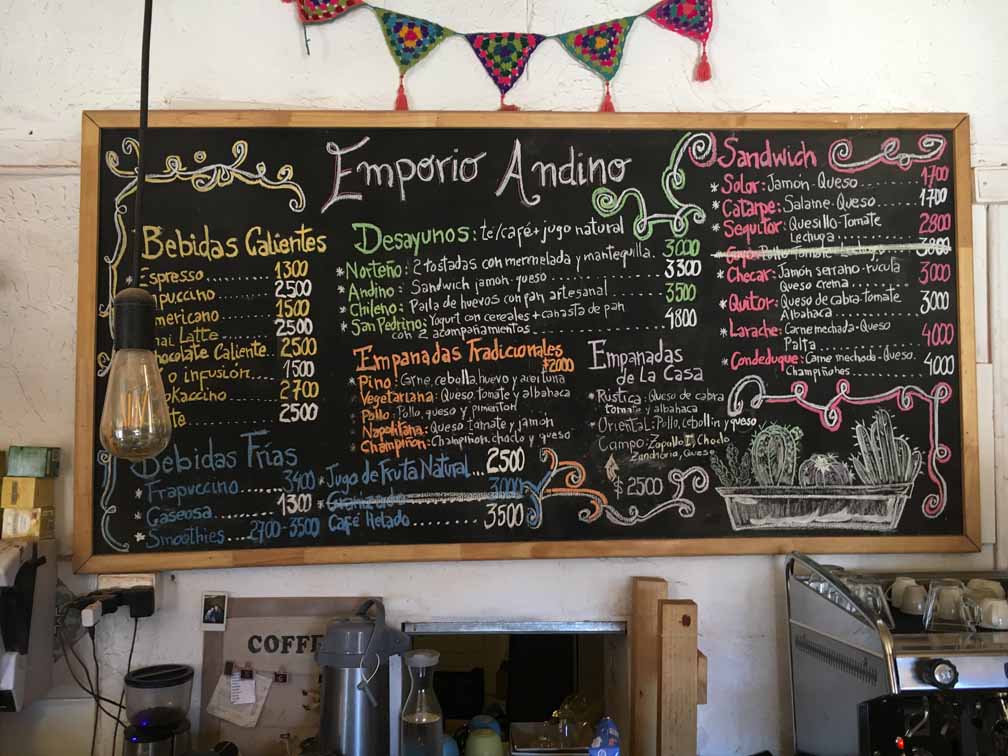 Emporio Andino
Bebidas Calientes
Espresso ........ 1300
2500
1500
Latte ....... 2500
Caliente... 2500
o infusión....... 1500
2700
2500
Bebidas Frías
*Frapuccino ...... 3400
*Gaseosa ........ 1300
*Smoothies .... 2700-3500
*Jugo de Fruta Natural ... 2500
3000
Café Helado .......... 3500
Desayunos: te/café + jugo natural
*Norteño: 2 tostadas con mermelada y mantequilla. 3000
*Andino: Sandwich jamon-queso ........ 3300
*Chileno: Paila de huevos con pan artesanal ........ 3500
*San Pedrino: Yogurt con cereales + canasta de pan
con 2 acompañamientos ........ 4800
Empanadas Tradicionales
$2000
*Pino: Carne, cebolla, huevo y aceituna
*Vegetariana: Queso, tomate y albahaca
*Pollo: Pollo, queso y pimenton
*Napolitana: Queso, tomate y jamon
*Champiñon: Champiñon, choclo y queso
Empanadas
de La Casa
*Rustica: Queso de cabra
tomate y albahaca
*Oriental: Pollo, cebollin y queso
*Campo: Zapallo I, Choclo
Zanahoria, Queso
$2500
Sandwich
*Solor: Jamón-Queso ........ 1700
*Catarpe: Salame-Queso ....... 1700
*Sequitor: Quesillo-Tomate 2800
Lechuga
Pollo Tomate Lechuga 3800
*Checar: Jamón serrano-rúcula 3000
Queso crema
*Quitor: Queso de cabra-tomate 3000
Albahaca
*Larache: Carne mechada-Queso
Palta 4000
*Condeduque: Carne mechada-Queso.
Champiñones 4000
COFFE